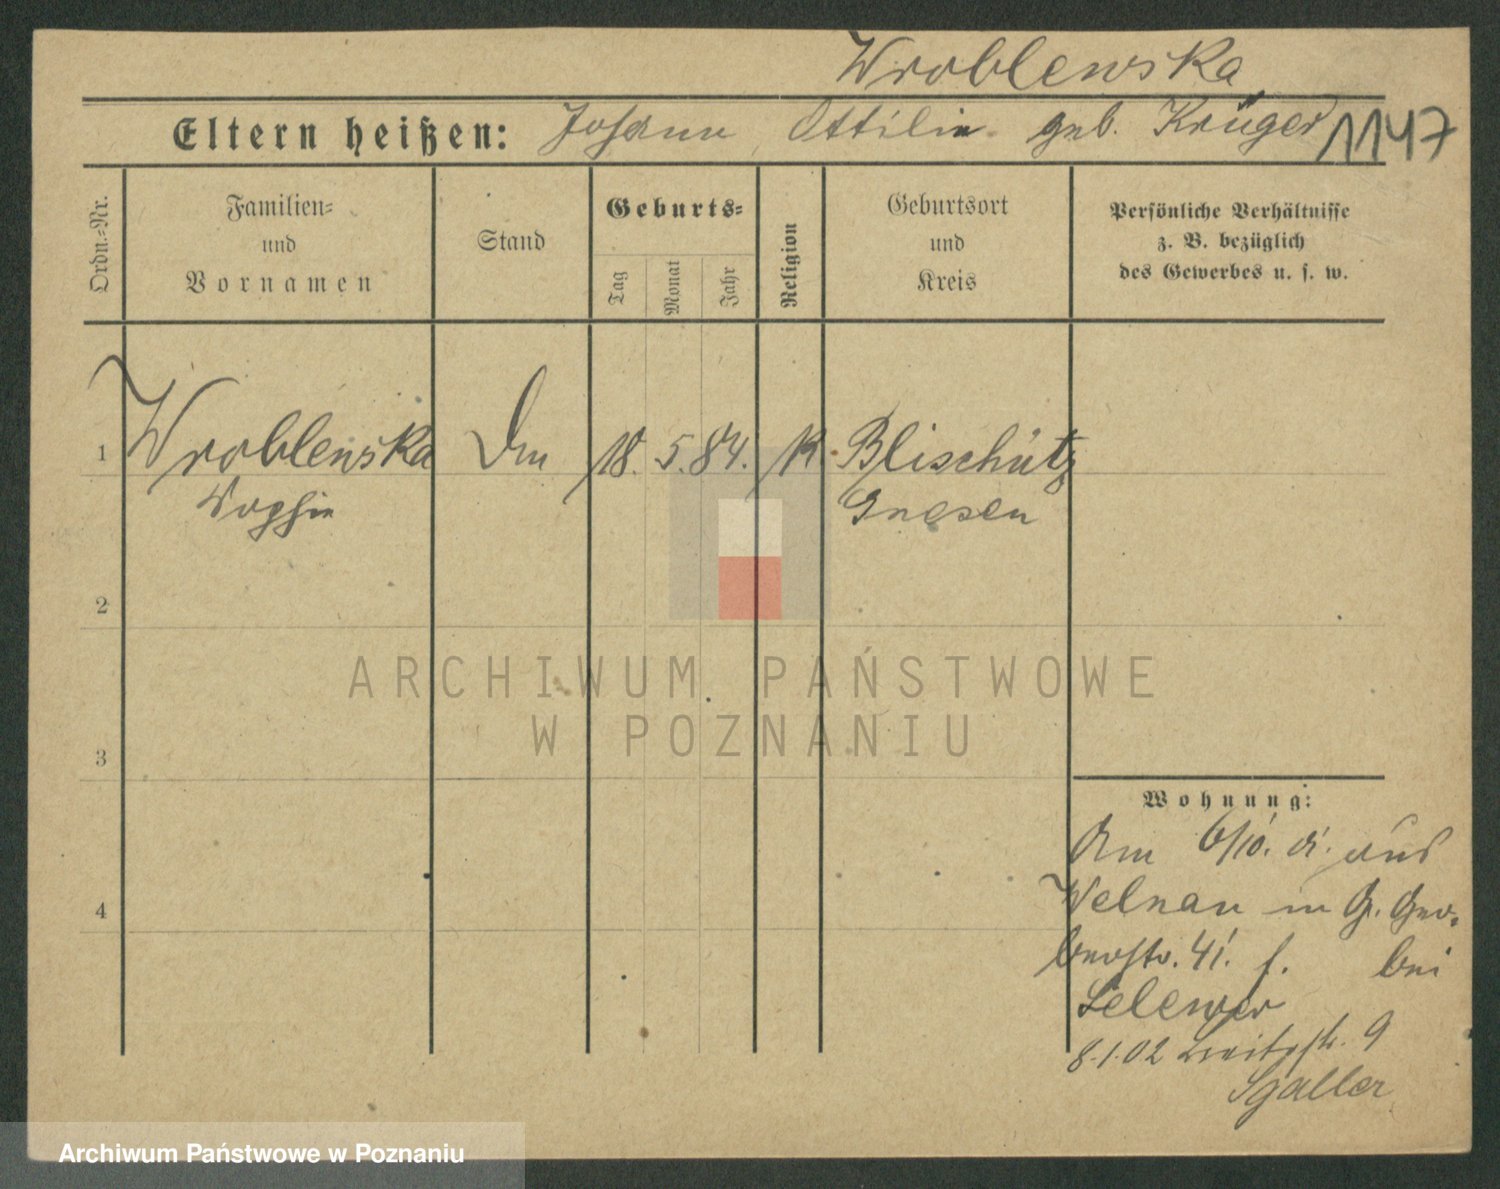 Wroblewska
Eltern heißen: Johann, Ottilie geb. Krüger
1147
Ordn.-Nr.
Familien-
und
Vornamen
Stand
Geburts-
Tag
Monat
Jahr
Religion
Geburtsort
und
Kreis
Persönliche Verhältnisse
z. B. bezüglich
des Gewerbes u. s. w.
1 Wroblewska 18. 5. 84. K. Blischütz
Sophie Gnesen
2
3
4
Wohnung:
Am 6/10. 01. aus
Welnau in G. Ger-
berstr. 41. bei
8.1.02 9
ARCHIWUM PAŃSTWOWE
W POZNANIU
Archiwum Państwowe w Poznaniu